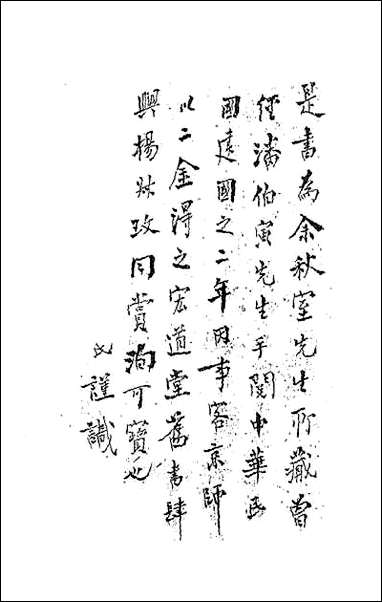 是書為余秋室先生所藏曾
經潘伯寅先生手閱中華民
國建國之二年因事客京師
以二金得之宏道堂舊書肆
與楊 玫同賞洵可寶也
氏謹識